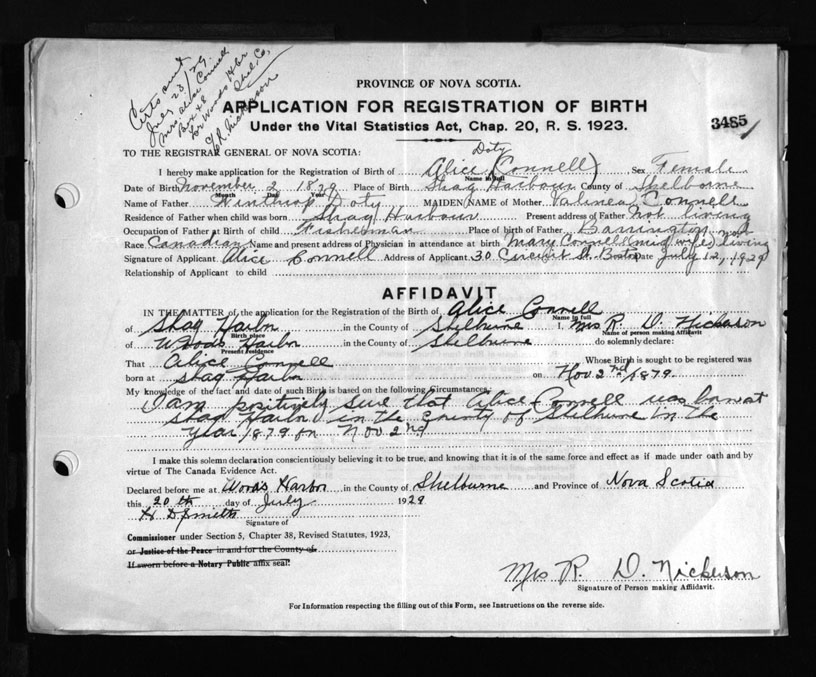 Certs out
July 23/29
Mrs. Alice Connell
Box 48
Lr Woods Hbr
Shel. Co.
Nickerson
PROVINCE OF NOVA SCOTIA.
APPLICATION FOR REGISTRATION OF BIRTH
Under the Vital Statistics Act, Chap. 20, R. S. 1923.
3485
TO THE REGISTRAR GENERAL OF NOVA SCOTIA:
Doty
I hereby make application for the Registration of Birth of Alice (Connell) Sex Female
Name in full
Date of Birth November 2 1879 Place of Birth Shag Harbour County of Shelborne
Month Day Year
Name of Father Winthrop Doty MAIDEN NAME of Mother Valinea Connell
Residence of Father when child was born Shag Harbour Present address of Father not living
Occupation of Father at Birth of child Fisherman Place of birth of Father Barrington
Race Canadian Name and present address of Physician in attendance at birth Mary Connell (mid wife) not living
Signature of Applicant Alice Connell Address of Applicant 30 Circuit St. Boston Date July 12, 1929
Relationship of Applicant to child
AFFIDAVIT
IN THE MATTER of the application for the Registration of Birth of Alice Connell
Name in full
of Shag Harbor in the County of Shelburne I, Mrs R. D. Nickerson
Birth place Name of person making Affidavit.
of Woods Harbor in the County of Shelburne do solemnly declare:
Present residence
That Alice Connell Whose Birth is sought to be registered was
born at Shag Harbor on Nov. 2nd, 1879.
My knowledge of the fact and date of such Birth is based on the following Circumstances
I am positively sure that Alice Connell was born at
Shag Harbor in the County of Shelburne in the
year 1879 on Nov 2nd
I make this solemn declaration conscientiously believing it to be true, and knowing that it is of the same force and effect as if made under oath and by
virtue of The Canada Evidence Act.
Declared before me at Woods Harbor in the County of Shelburne and Province of Nova Scotia
this 20th day of July 1929
H D Smith
Signature of
Commissioner under Section 5, Chapter 38, Revised Statutes, 1923,
or Justice of the Peace in and for the County of
If sworn before a Notary Public affix seal.
Mrs R. D. Nickerson
Signature of Person making Affidavit.
For Information respecting the filling out of this Form, see Instructions on the reverse side.